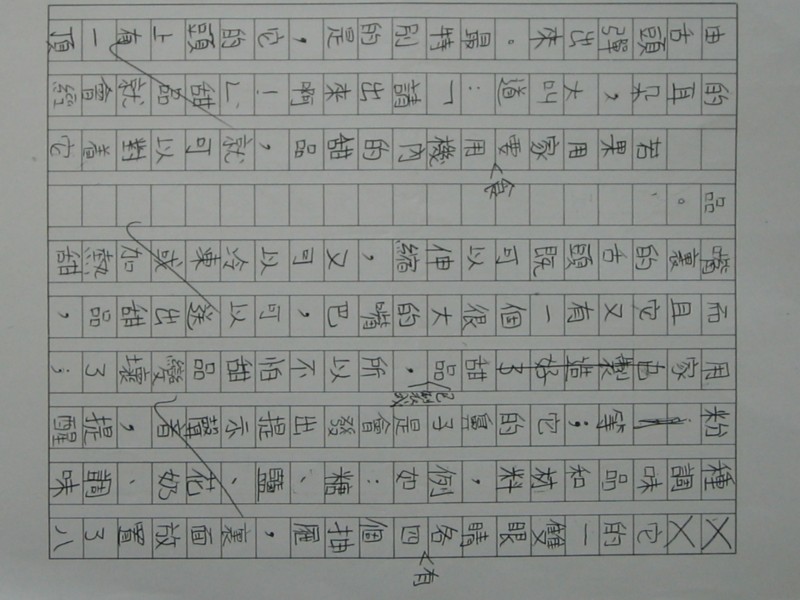 它的一雙眼睛各有四個抽屜，裏面放置了八
種調味品和材料，例如：糖、鹽、花奶、調味
粉等；它的鼻子是會發出提示聲音，提醒
用家已製造好了甜品已製成，所以不怕甜品變壞了；
而且它又有一個很大的嘴巴，可以送出甜品，
嘴裏的舌頭既可以伸縮，又可以冷凍或加熱甜
品。
若果用家要食用機內的甜品，就可以對着它
的耳朵，大叫道：「請出來啊！」甜品就會經
由舌頭彈出來。最特別的是，它的頭上有一頂